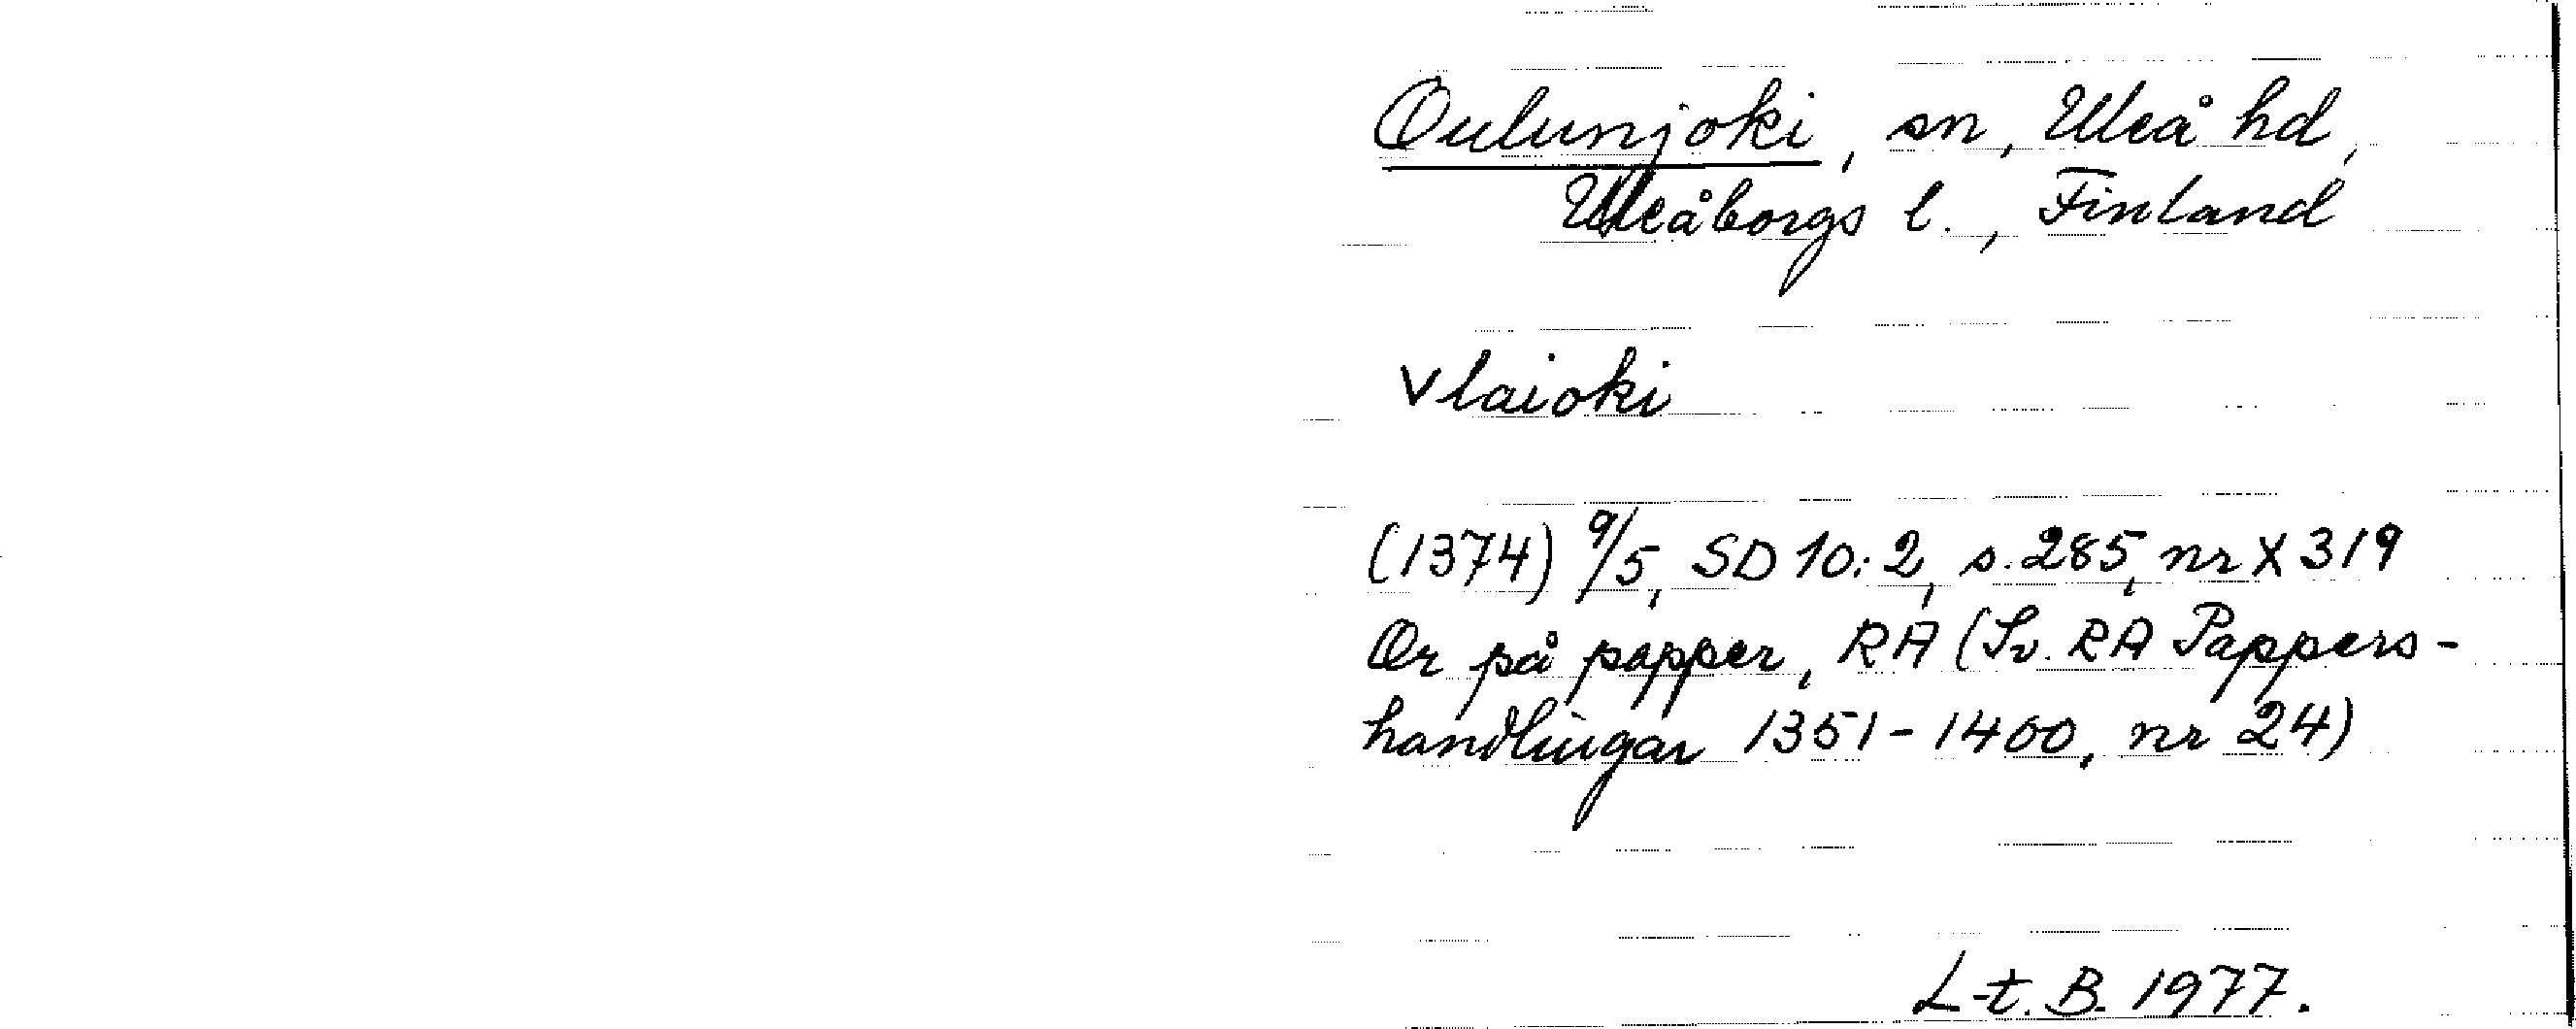 Oulunjoki, sn, Uleå hd,
Uleåborgs l., Finland
Vlaioki
(1374) 9/5, SD 10:2, s. 285, nr X 319
Or på papper, RA (Sv. RA Pappers-
handlingar 1351-1400, nr 24)
L-t. B. 1977.